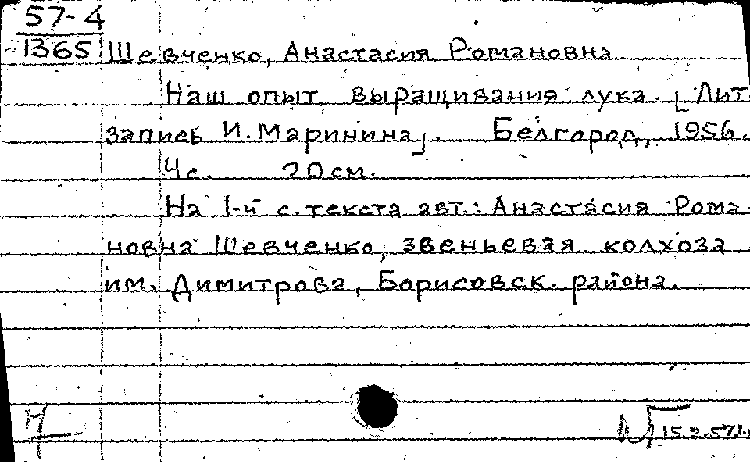 57-4
1365
Шевченко, Анастасия Романовна
Наш опыт выращивания лука. [Лит.
запись И. Маринина]. Белгород, 1956.
4 с. 20 см.
На 1-й с. текста авт.: Анастасия Рома-
новна Шевченко, звеньевая колхоза
им. Димитрова, Борисовск. района.
15.2.57г.